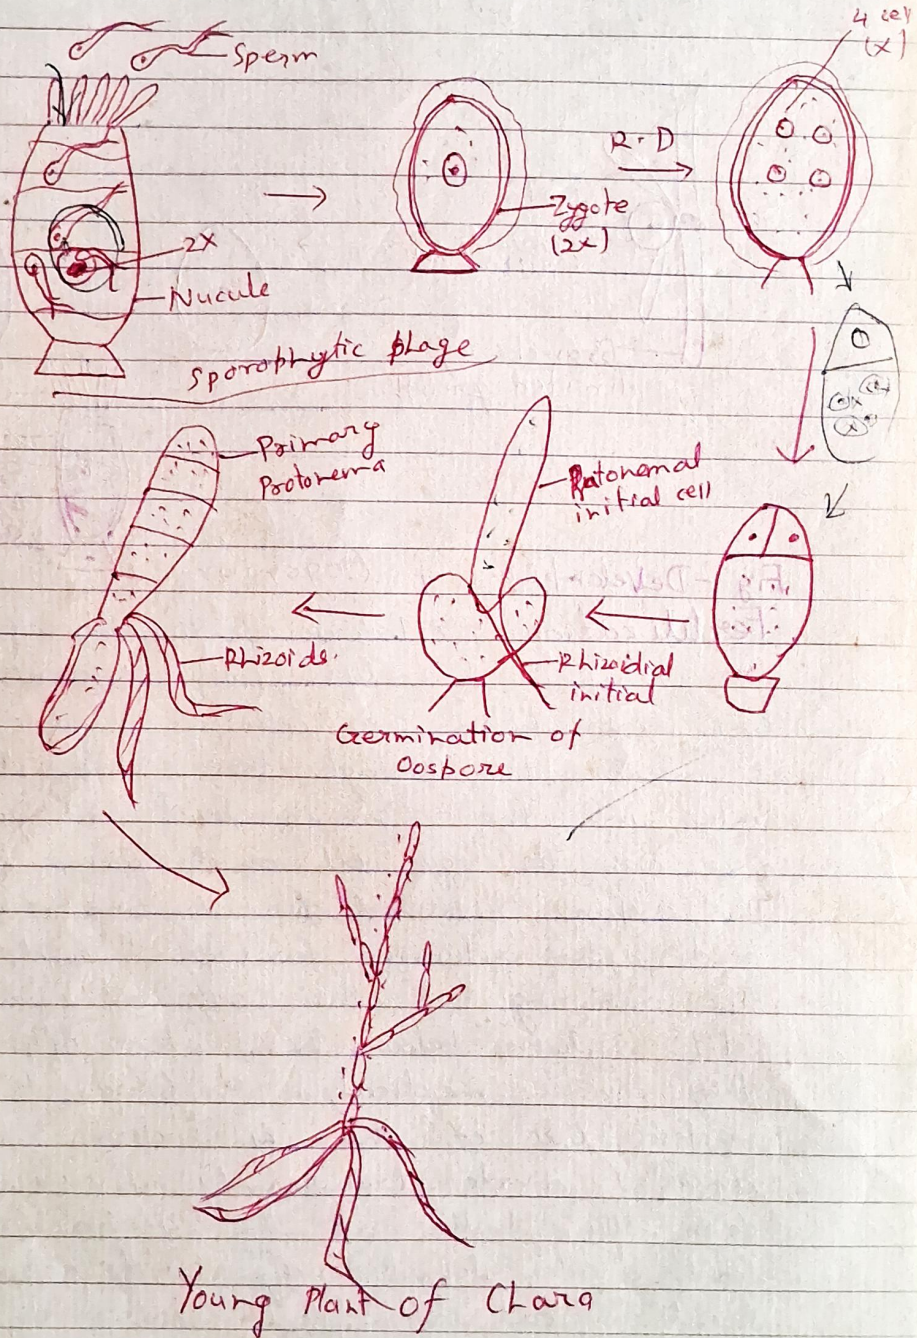 4 cell
(x)
Sperm
R.D
Zygote
(2x)
2x
Nucule
Sporophytic phage
Primary
Protonema
Rotonemal
initial cell
Rhizoids.
Rhizoidial
initial
Germination of
Oospore
Young Plant of Chara